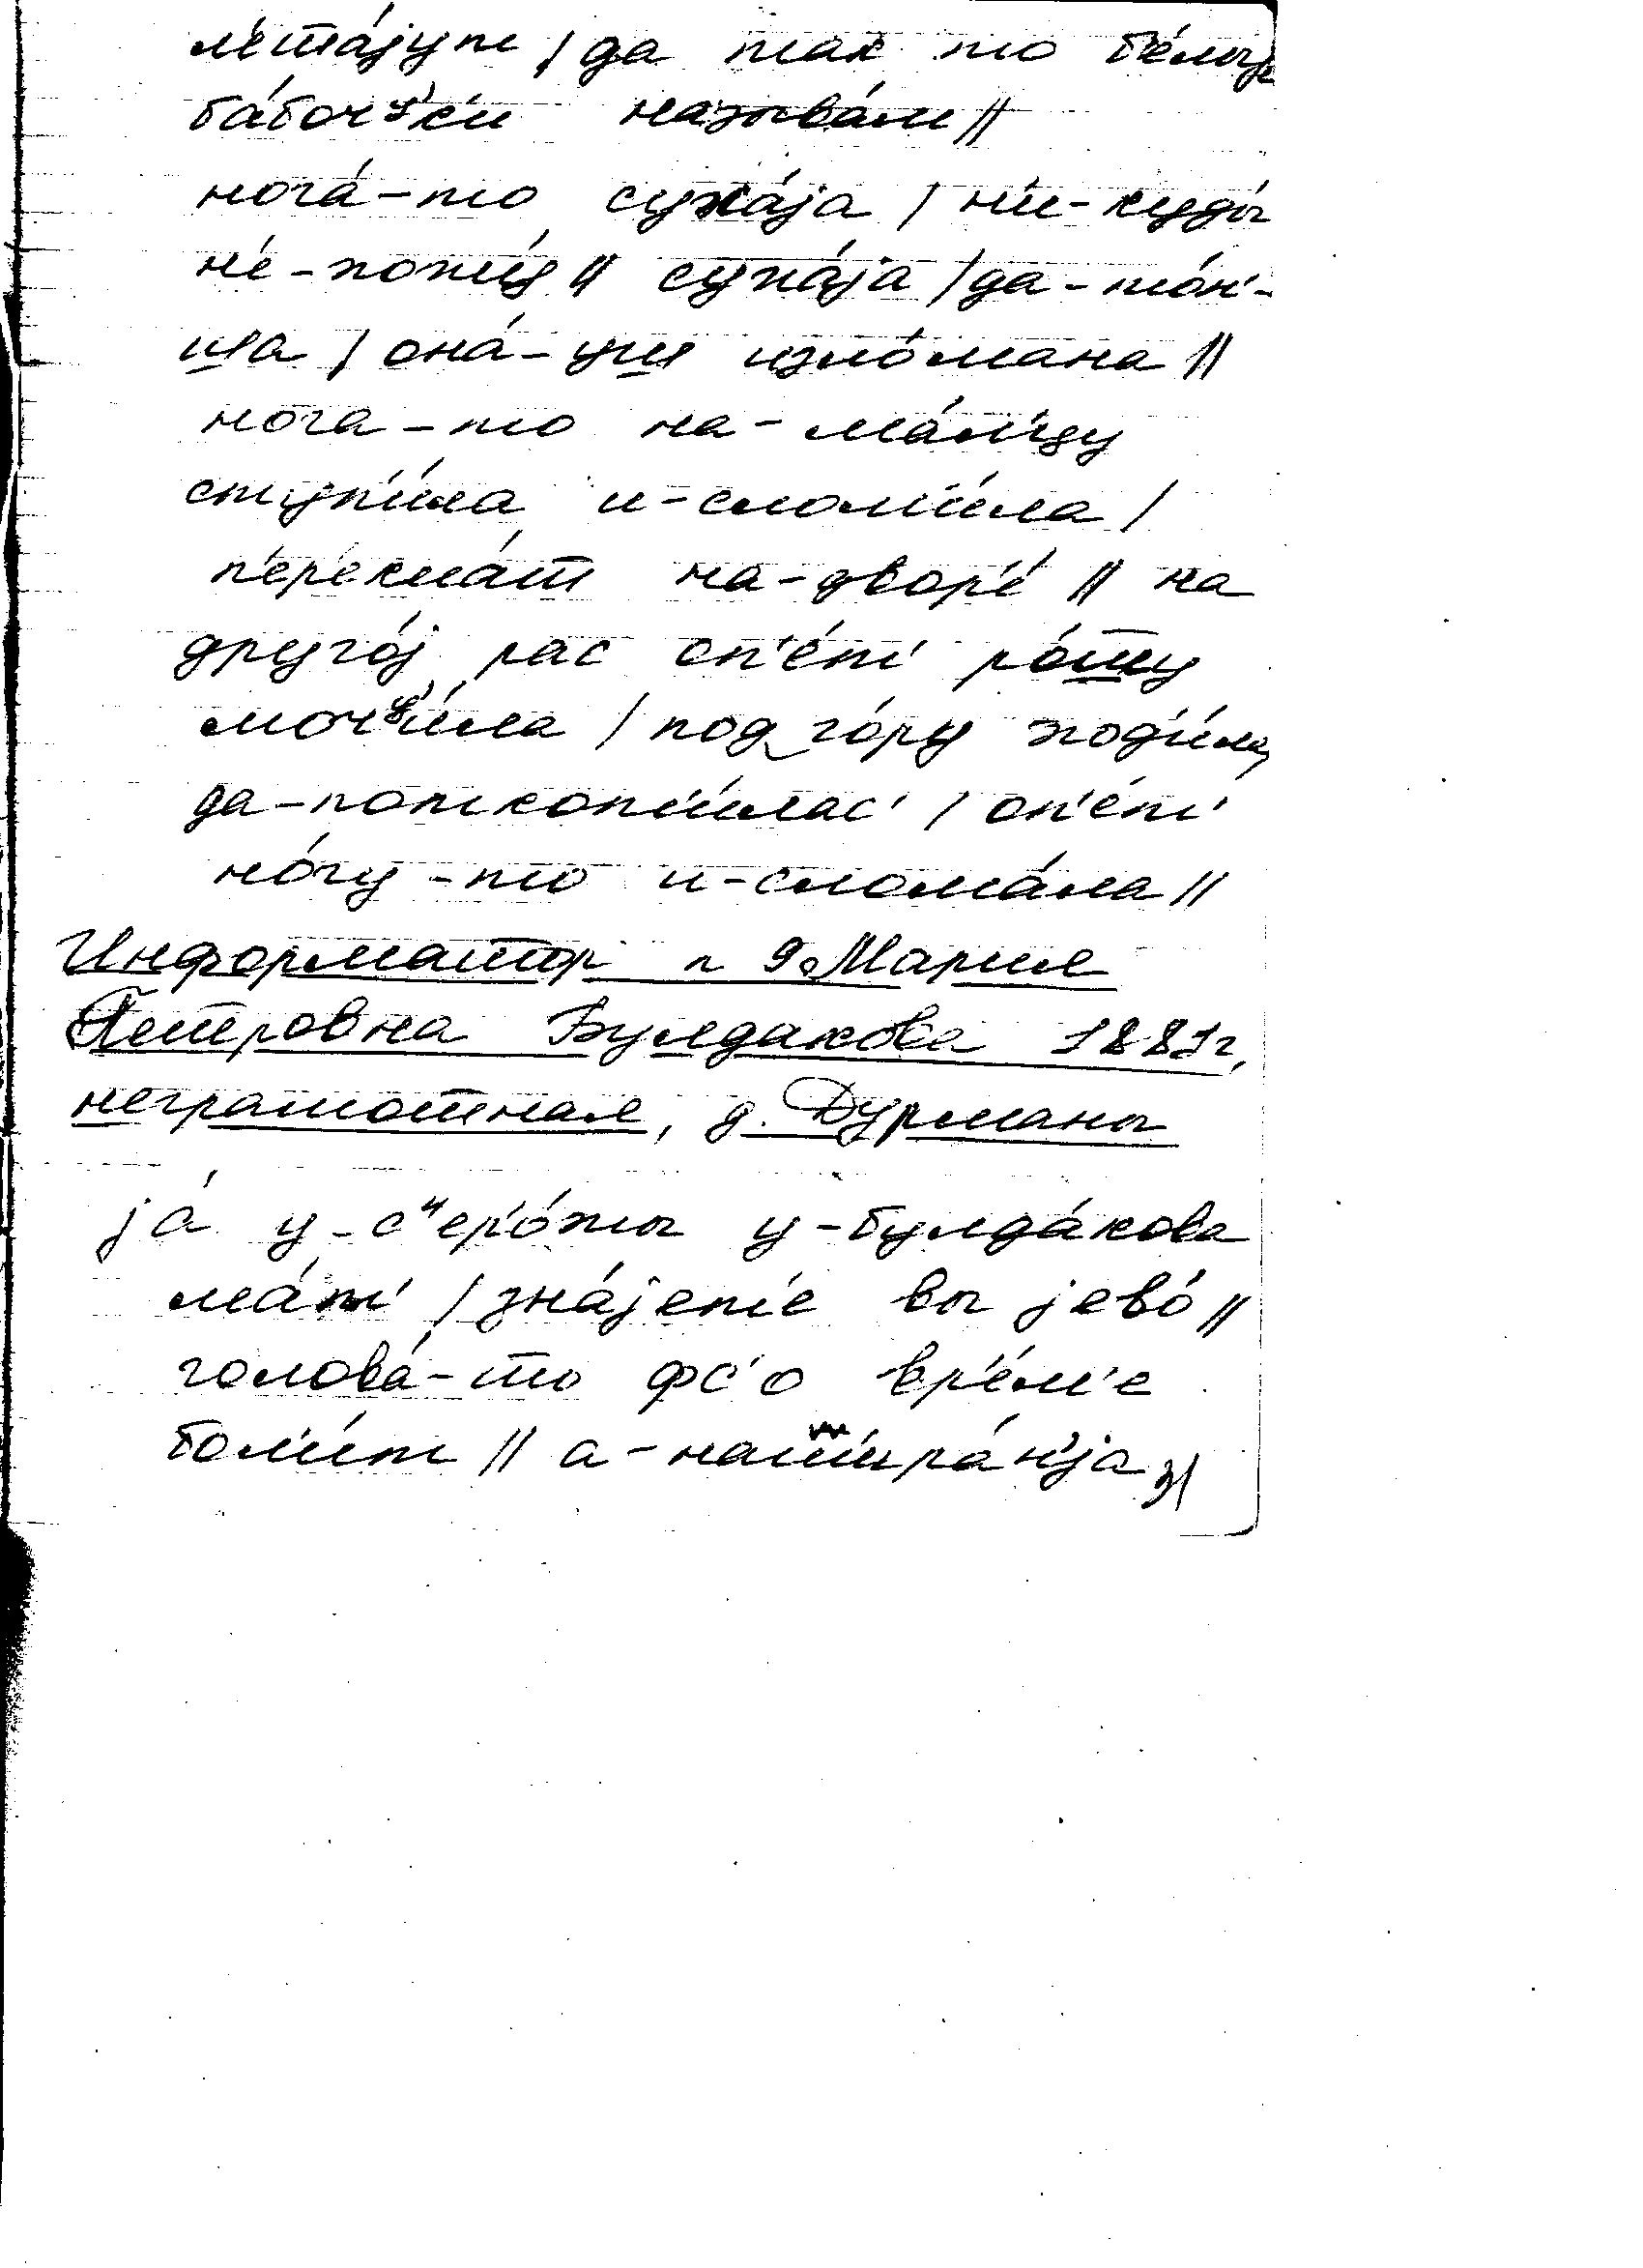 л'ета́јут / да так то бе́лыје
ба́боч'к'и называ́ли //
нога́-то суха́ја / н'и-куды́
н'е-хожу́ // суха́ја / да-то́н'-
ша / она́-уш изло́мана //
нога-то на-ма́л'иду
ступ'и́ла и-слом'и́ла /
п'ер'екла́т на-двор'е́ // на
друго́ј рас оп'е́т' ро́шшу
моч'и́ла / под го́ру ход'и́ла,
да-поткоп'и́лас' / оп'е́т'
но́гу-то и-слома́ла //
Информатор n 9. Мария
Петровна Булдакова 1881г,
неграмотная, д. Дурманы
ја́ у-с'ер'о́жы у-булда́кова
ма́т' / зна́јет'е вы јево́ //
голова́-то фс'о вр'е́м'е
бол'и́т // а-нат'ира́н'ја